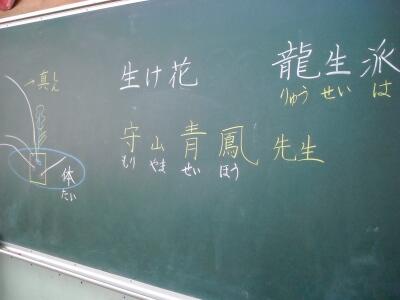 生け花 龍生派
りゅう せい は
守山青鳳 先生
もり やま せい ほう
真
しん
体
たい